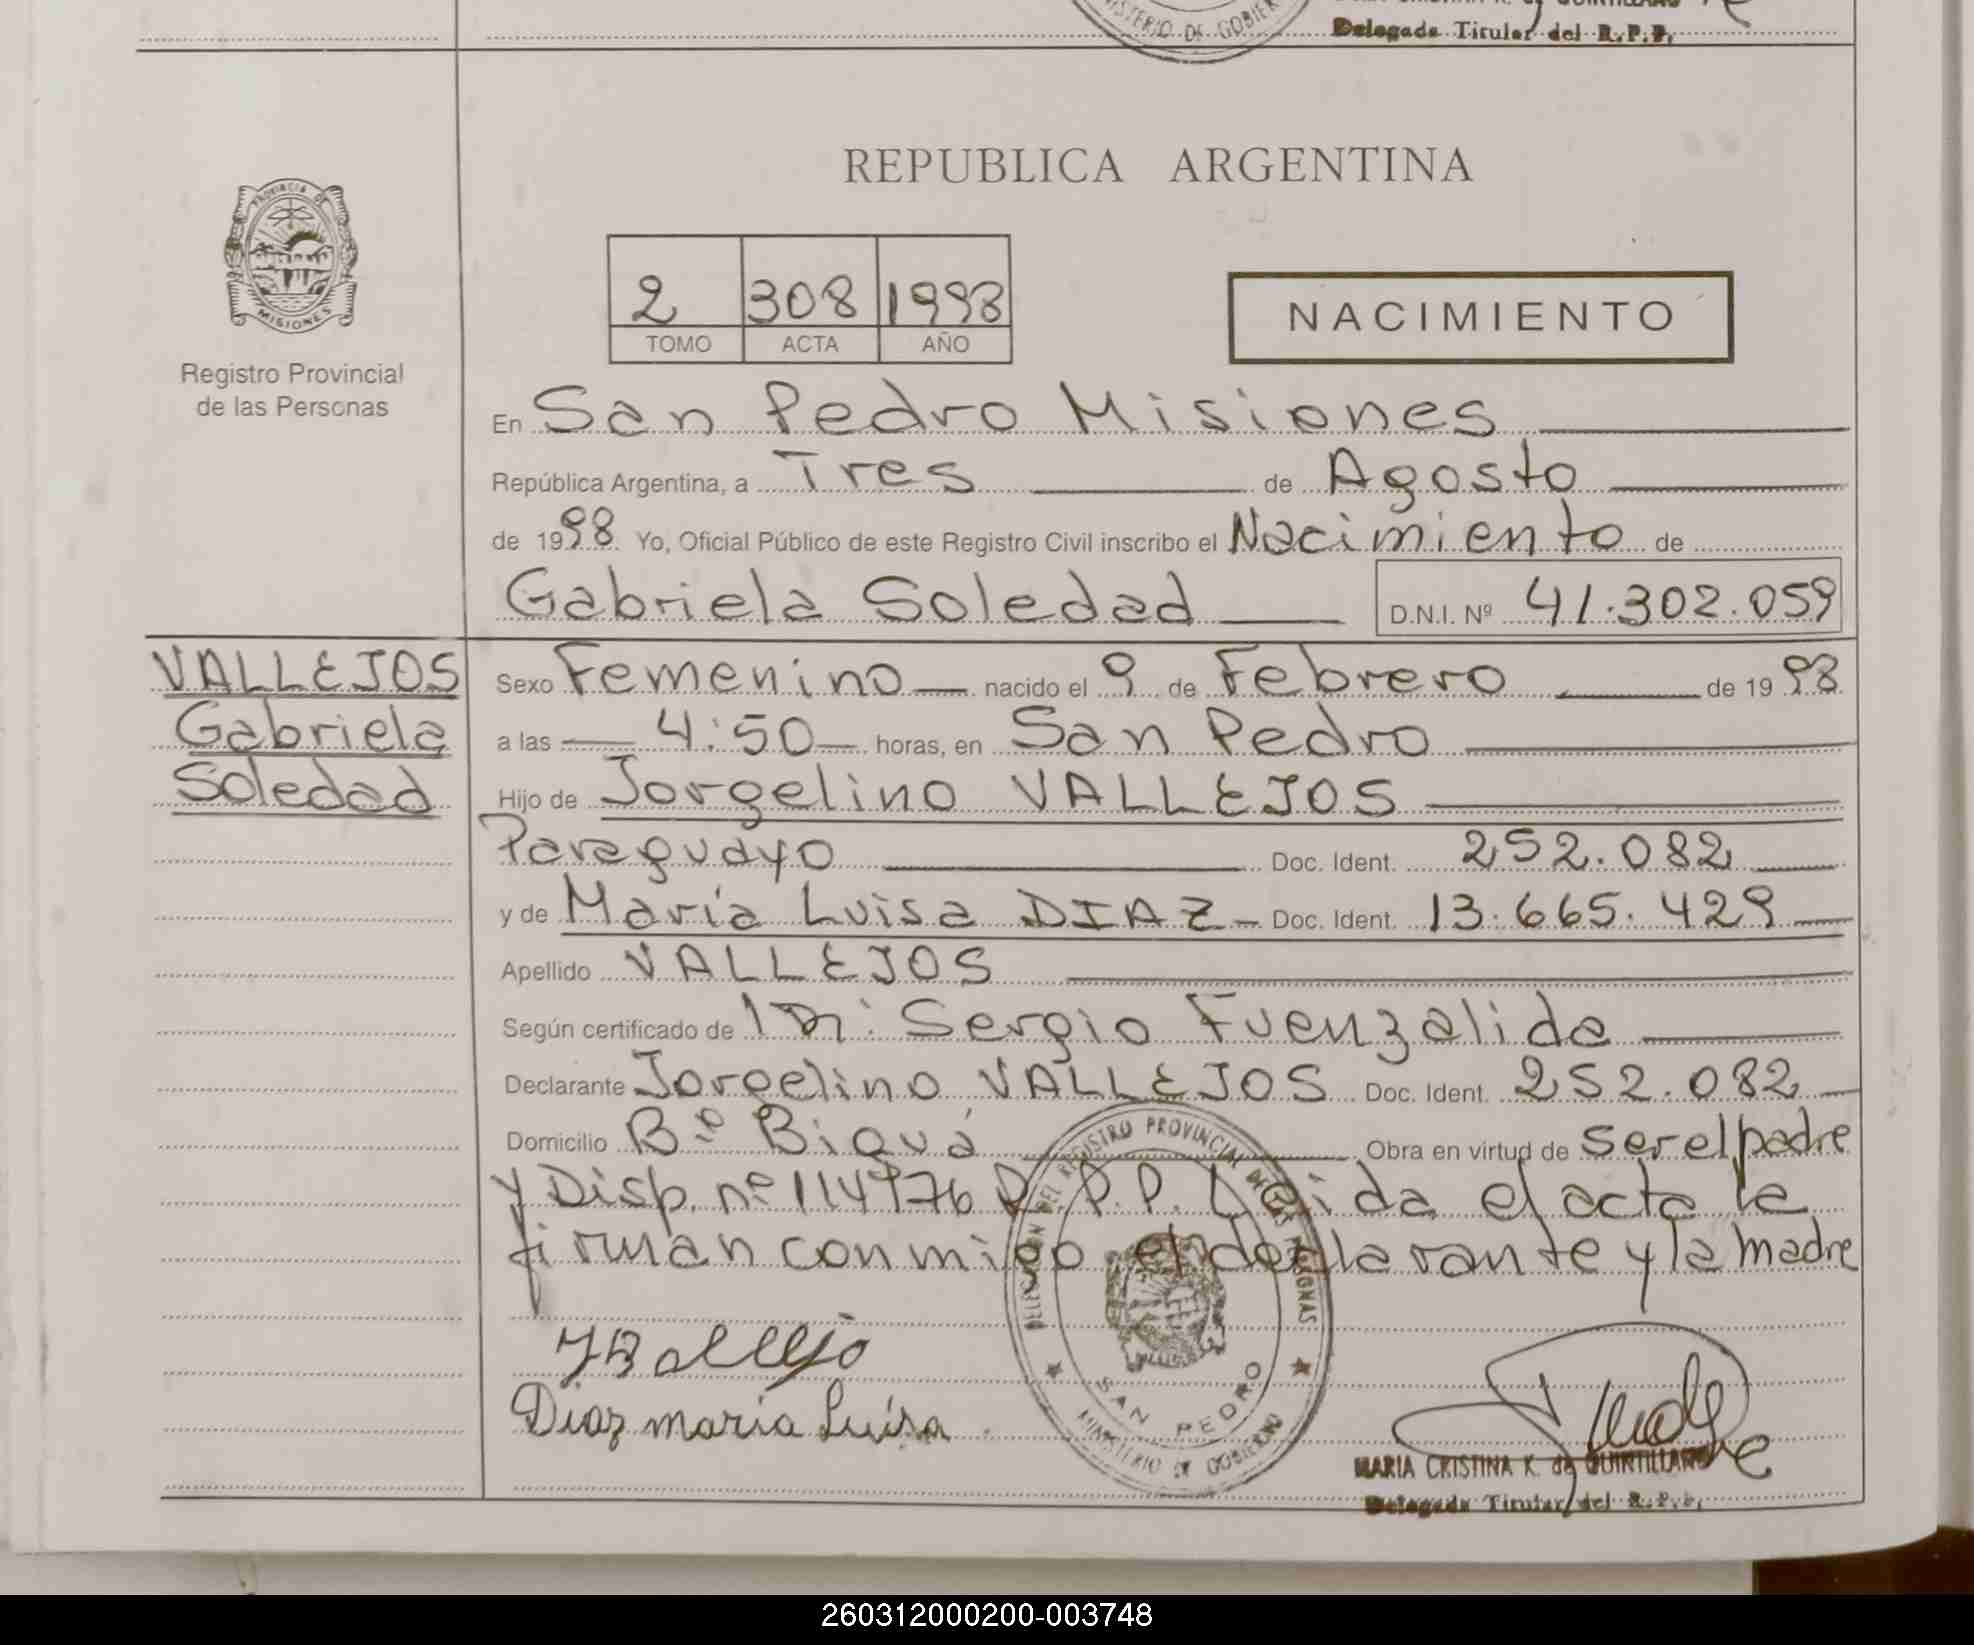 MINISTERIO DE GOBIER
Delegada Titular del R.P.P.
REPUBLICA ARGENTINA
PROVINCIA DE
MISIONES
Registro Provincial
de las Personas
2 308 1998
TOMO ACTA AÑO
NACIMIENTO
En San Pedro Misiones
República Argentina, a Tres de Agosto
de 1998. Yo, Oficial Público de este Registro Civil inscribo el Nacimiento de
Gabriela Soledad D.N.I. Nº 41.302.059
VALLEJOS
Gabriela
Soledad
Sexo Femenino nacido el 9 de Febrero de 1998
a las 4:50 horas, en San Pedro
Hijo de Jorgelino VALLEJOS
Paraguayo Doc. Ident. 252.082
y de María Luisa DIAZ Doc. Ident. 13.665.429
Apellido VALLEJOS
Según certificado de Sergio Fuenzalida
Declarante Jorgelino VALLEJOS Doc. Ident. 252.082
Domicilio Bº Biguá Obra en virtud de ser el padre
y Disp. nº 114/76 R.P.P. Leida el acta la
firman conmigo el declarante y la madre
Diaz maria Luisa
DELEGACION DEL REGISTRO PROVINCIAL DE LAS PERSONAS
SAN PEDRO
MINISTERIO DE GOBIERNO
MARIA CRISTINA K. de QUINTILLAN
Delegada Titular del R.P.P.
260312000200-003748